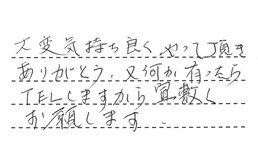 大変気持ち良くやって頂き
ありがとう。又何か有ったら
TELしますから宜敷く
お願します。